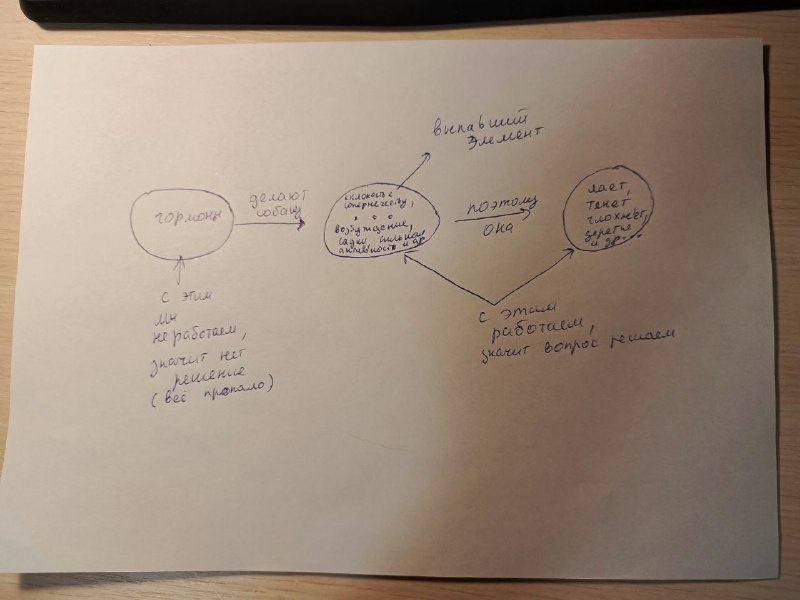 выпавший
элемент
гормоны
делают
собаку
соперничеству,
возбуждение,
активность и др
поэтому
она
лает,
тянет
глохнет,
и др...
с этим
мы
не работаем,
значит нет
решение
(всё пропало)
с этим
работаем,
значит вопрос решаем